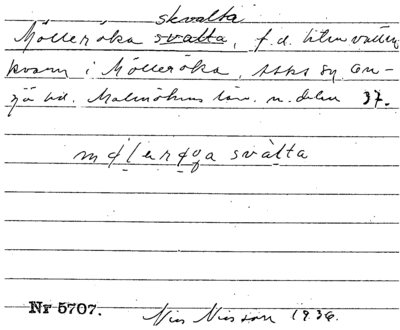 skvalta
Mölleröka svalta, f.d. liten vatten
kvarn i Mölleröka, Asks sn. On-
sjö hd. Malmöhus län. n. delen 37.
mǿlerǿga svàlta
Nr 5707. Nils Nilsson 1936.